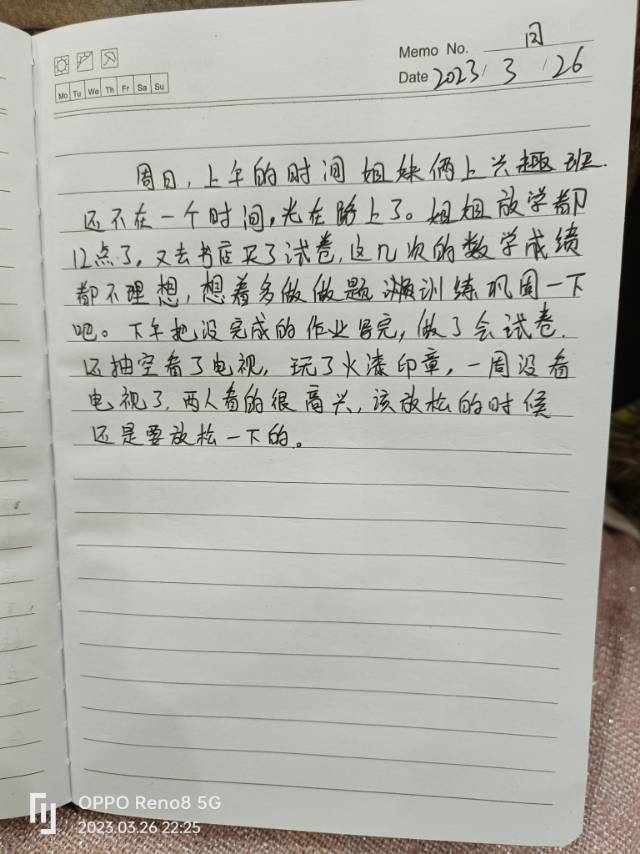 Memo No. 日
Mo Tu We Th Fr Sa Su
Date 2023 / 3 / 26
周日,上午的时间姐妹俩上兴趣班.
还不在一个时间,光在路上了。姐姐放学都
12点了,又去书店买了试卷,这几次的数学成绩
都不理想,想着多做做题 训练巩固一下
吧。下午把没完成的作业写完,做了会试卷.
还抽空看了电视,玩了火漆印章,一周没看
电视了.两人看的很高兴,该放松的时候
还是要放松一下的。
OPPO Reno8 5G
2023.03.26 22:25